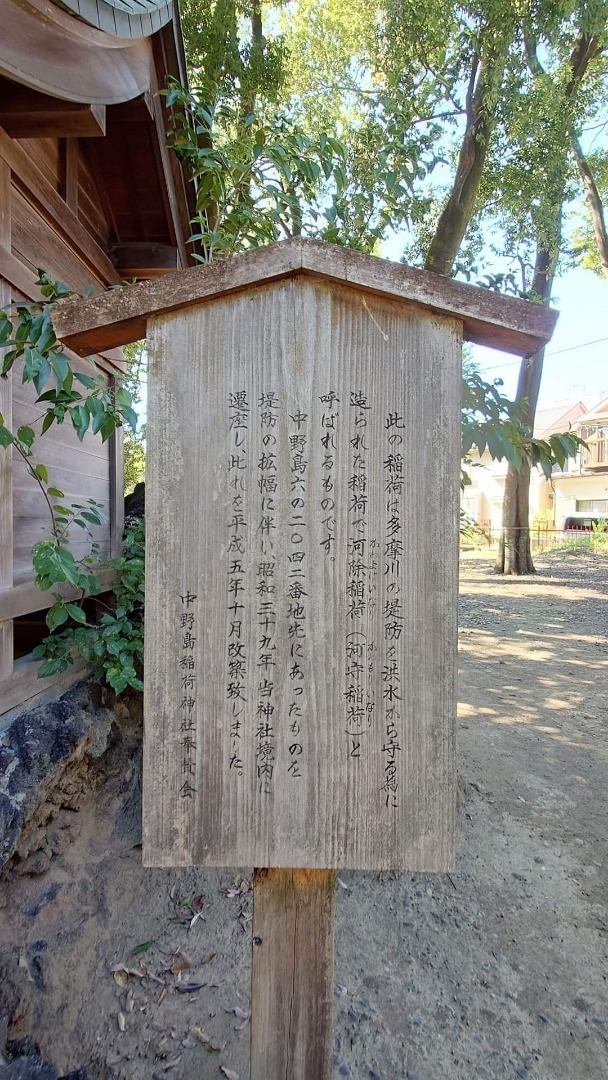 此の稲荷は多摩川の堤防を洪水から守る為に
造られた稲荷で河除稲荷（河守稲荷）と
かよけいなり
かもりいなり
呼ばれるものです。
中野島六の二〇四二番地先にあったものを
堤防の拡幅に伴い、昭和三十九年当神社境内に
遷座し、此れを平成五年十月改築致しました。
中野島稲荷神社奉賛会